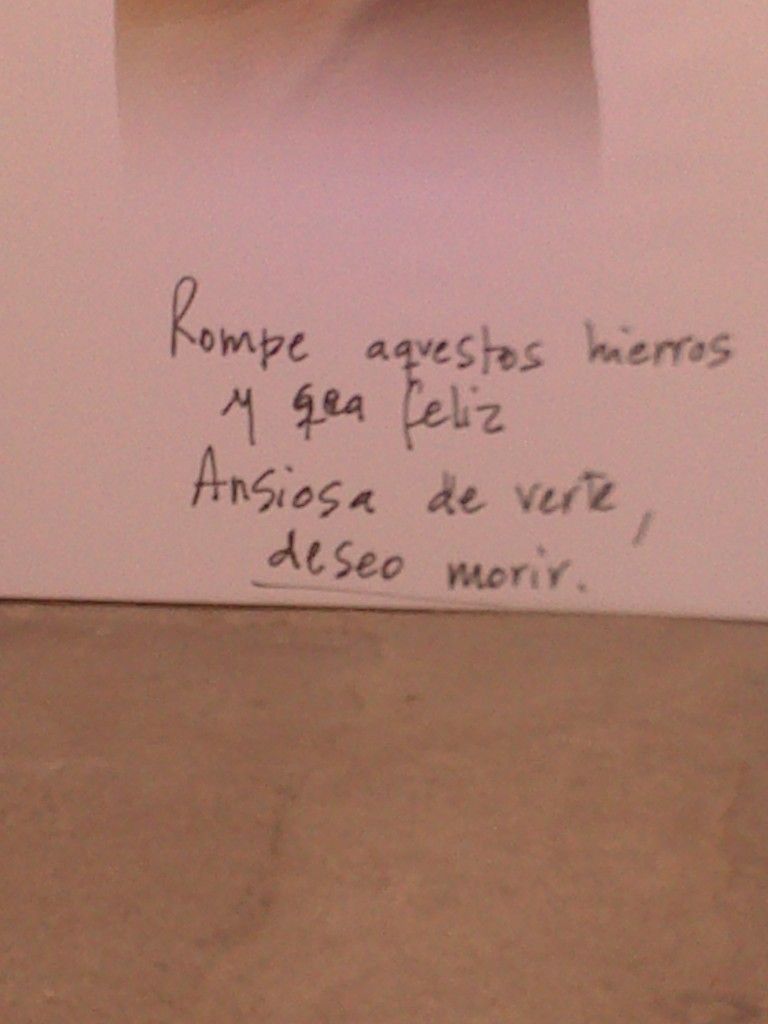 Rompe aquestos hierros
y sea feliz
Ansiosa de verte,
deseo morir.